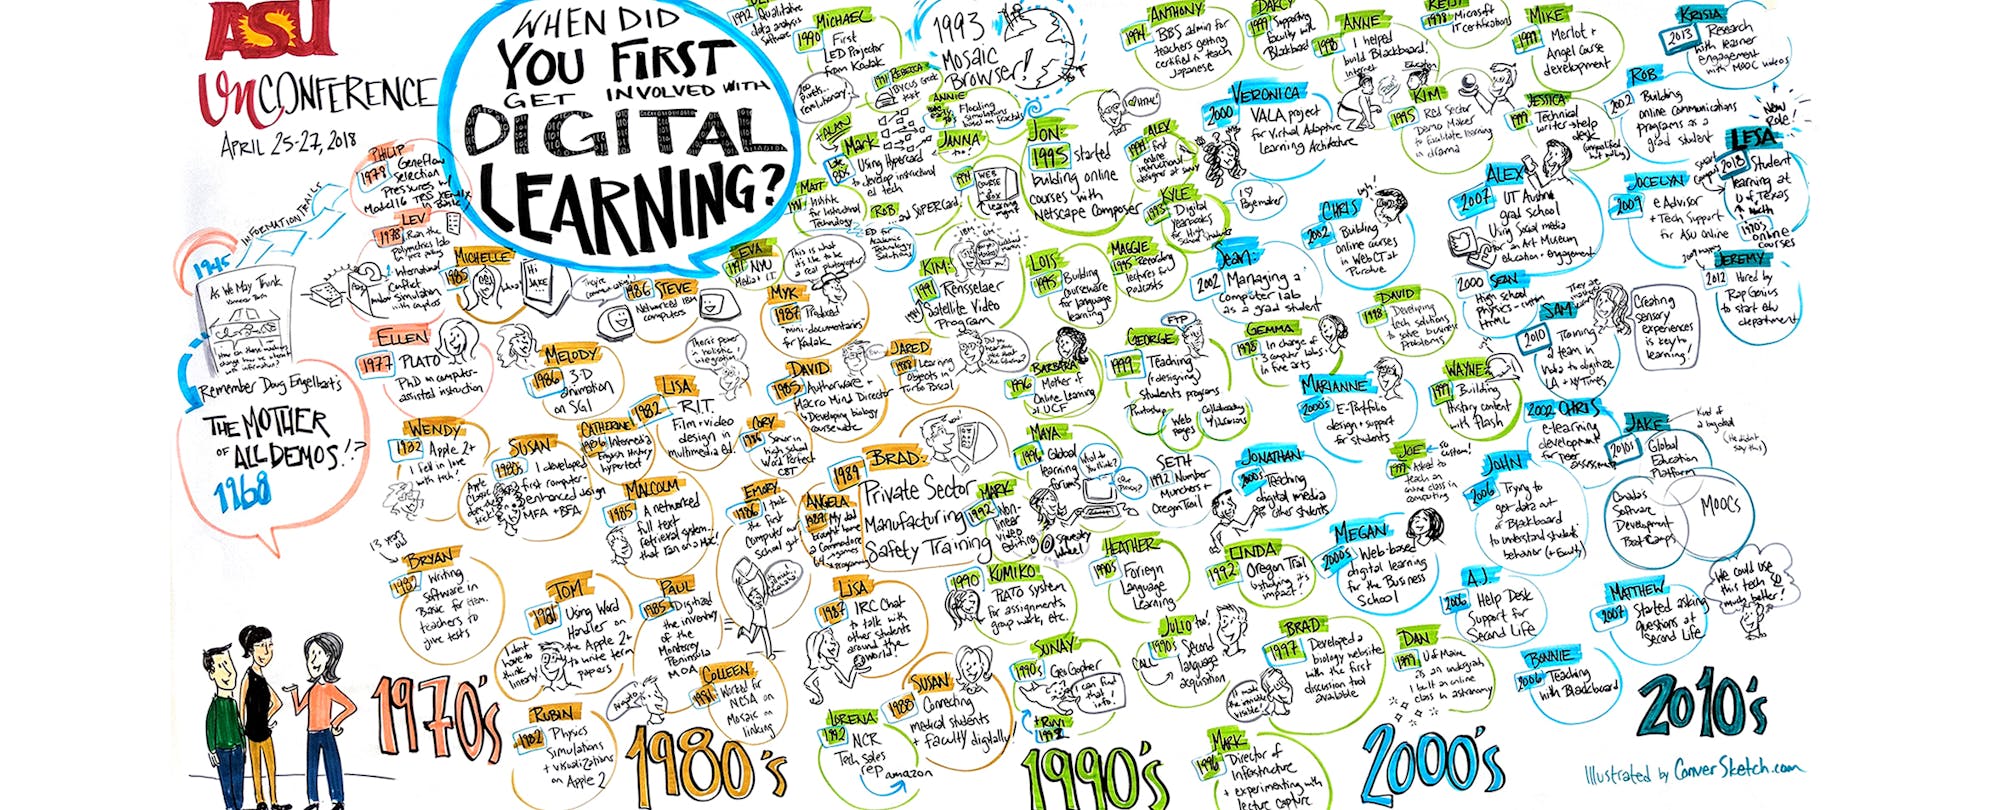 ASU
UNCONFERENCE
APRIL 25-27, 2018
WHEN DID
YOU FIRST
GET INVOLVED WITH
DIGITAL
LEARNING?
INFORMATION TRAILS
1945
As We May Think
Remember Doug Engelbart's
THE MOTHER
OF ALL DEMOS!?
1968
PHILIP
Geneflow
Selection
Pressures
LEV
1978
International
Conflict
Simulation
ELLEN
1977 PLATO
PhD in computer-
assisted instruction
1970's
MICHELLE
1985
Hi
JAKE
1986 STEVE
Networked IBM
computers
MELODY
1986 3-D
animation
on SGI
WENDY
1982 Apple 2+
I fell in love
with tech!
SUSAN
1980's I developed
first computer-
enhanced design
MFA + BFA
CATHERINE
1986 Intermedia
English History
hypertext
LISA
1982 R.I.T.
Film + video
design in
multimedia ed.
There's power
in holistic
integration!
MYK
1987 Produced
"mini-documentaries"
for Kodak
This is what
it's like to be
a real photographer!
DAVID
1985 Authorware +
Macro Mind Director
Developing biology
courseware
JARED
Learning
objects in
Turbo Pascal
CORY
1986 Senior in
high school
Word Perfect
CBT
MALCOLM
1985 A networked
full text
retrieval system...
that ran on a Mac!
EMORY
1986 I took
the first
computer our
school got
ANGELA
My dad
brought home
a Commodore
64
BRAD:
1989
Private Sector
Manufacturing
Safety Training
13 years
old
BRYAN
1982 Writing
software in
Basic for elem.
teachers to
give tests
TOM
1981 Using Word
Handler on
the Apple 2+
to write term
papers
I don't
have to
think
linearly!
PAUL
1985 Digitized
the inventory
of the
Monterey
Peninsula
MOA
LISA
1987 IRC Chat
to talk with
other students
around the
world!
COLLEEN
Worked for
NCSA on
Mosaic on
linking
SUSAN
1988 Connecting
medical students
+ faculty digitally!
RUBIN
1982 Physics
Simulations
+ visualizations
on Apple 2
1980's
1992 Qualitative
data analysis
software
MICHAEL
1990 First
LED Projector
from Kodak
REBECCA
1993
Mosaic
Browser!
ANNIE
+ALAN
Mark
Using Hypercard
to develop instructional
ed tech
JANNA
too!
MATT
for Instructional
Technology
ROB
and SUPERCard
ED for
Academic
Technology
Solutions
WEB
COURSE
BOX
learning
mgmt
EVA
1991 NYU
Media + IT
JON:
1995 started
building online
courses with
Netscape Composer
ALEX
first
online
instructional
KYLE
1993 Digital
Yearbooks
for High
School Students
KIM:
1991 Rensselaer
Satellite Video
Program
LOIS
1995 Building
courseware
for language
learning
MAGGIE
1995 Recording
lectures for
podcasts
ANTHONY
1994 BBS admin for
teachers getting
certified to teach
Japanese
DARCY
1999 Supporting
faculty with
Blackboard
ANNE
1998 I helped
build Blackboard!
1998 Microsoft
IT certifications
MIKE
1997 Merlot +
Angel Course
development
KIM
1995 Red Sector
Demo Maker
to facilitate learning
in drama
JESSICA
1999 Technical
writer + help
desk
BARBARA
1996 Mother of
Online Learning
at UCF
GEORGE
FTP
1999 Teaching
(+ designing)
Students programs
Photoshop
Web
pages
GEMMA
1998 In charge of
3 computer labs
in fine arts
DAVID
1998 Developing
tech solutions
to solve business
problems
WAYNE
1997 Building
History content
with flash
MAYA
1996 Global
learning
forums
SETH
1992 Number
Munchers +
Oregon Trail
MARK
1992 Non-
linear
video
editing
squeaky
wheel
JOE
1999 Asked to
teach an
online class in
computing
KUMIKO
1990 PLATO system
for assignments,
group work, etc.
HEATHER
1990's Foriegn
Language
Learning
LINDA
1992 Oregon Trail
+ studying it's
impact!
SUNAY
1990's Geo Gopher
I can find
that
info!
JULIO too!
1990's Second
language
acquisition
CALL
BRAD
1997 Developed a
biology website
with the first
discussion tool
available
DAN
1999 U of Maine
as an undergrad,
I built an online
class in astronomy
LORENA
1992 NCR
Tech sales
rep
amazon
MARK
1996 Director of
Infrastructure
+ experimenting with
lecture capture
1990's
VERONICA
2000 VALA project
for Virtual Adaptive
Learning Architecture
CHRIS
2002 Building
online courses
in WebCT at
Purdue
Sean:
2002 Managing a
computer lab
as a grad student
ALEX
2007 UT Austin
grad school
Using social media
for an Art Museum
education + engagement
ROB
2002 Building
online communications
programs as a
grad student
JOCELYN
2009 eAdvisor
+ Tech Support
for ASU Online
2000 SEAN
High school
physics
HTML
MARIANNE
2000's E-Portfolio
design + support
for students
2002 CHRIS
e-learning
development
for peer
assessment
JONATHAN
2000's Teaching
digital media
to other students
JOHN
2006 Trying to
get data out
of Blackboard
to understand students'
behavior (+ faculty)
MEGAN
2000's Web-based
digital learning
for the Business
School
A.J.
2006 Help Desk
Support for
Second Life
MATTHEW
2007 Started asking
questions at
Second Life
We could use
this tech SO
much better!
BONNIE
2006 Teaching
with Blackboard
2000's
KRISIA
2013 Research
with learner
engagement
with MOOC videos
Now
Role!
LESA
2018 Student
learning at
U of Texas
1990's online
courses
JEREMY
2012 Hired by
Rap Genius
to start edu
department
SAM
2010 Training
a team in
India to digitize
LA + NY Times
Creating
sensory
experiences
is key to
learning!
JAKE
2010's Global
Education
Platform
Kind of
a big deal
(He didn't
say this)
Canada's
Software
Development
Boot Camps
MOOCS
2010's
Illustrated by ConverSketch.com